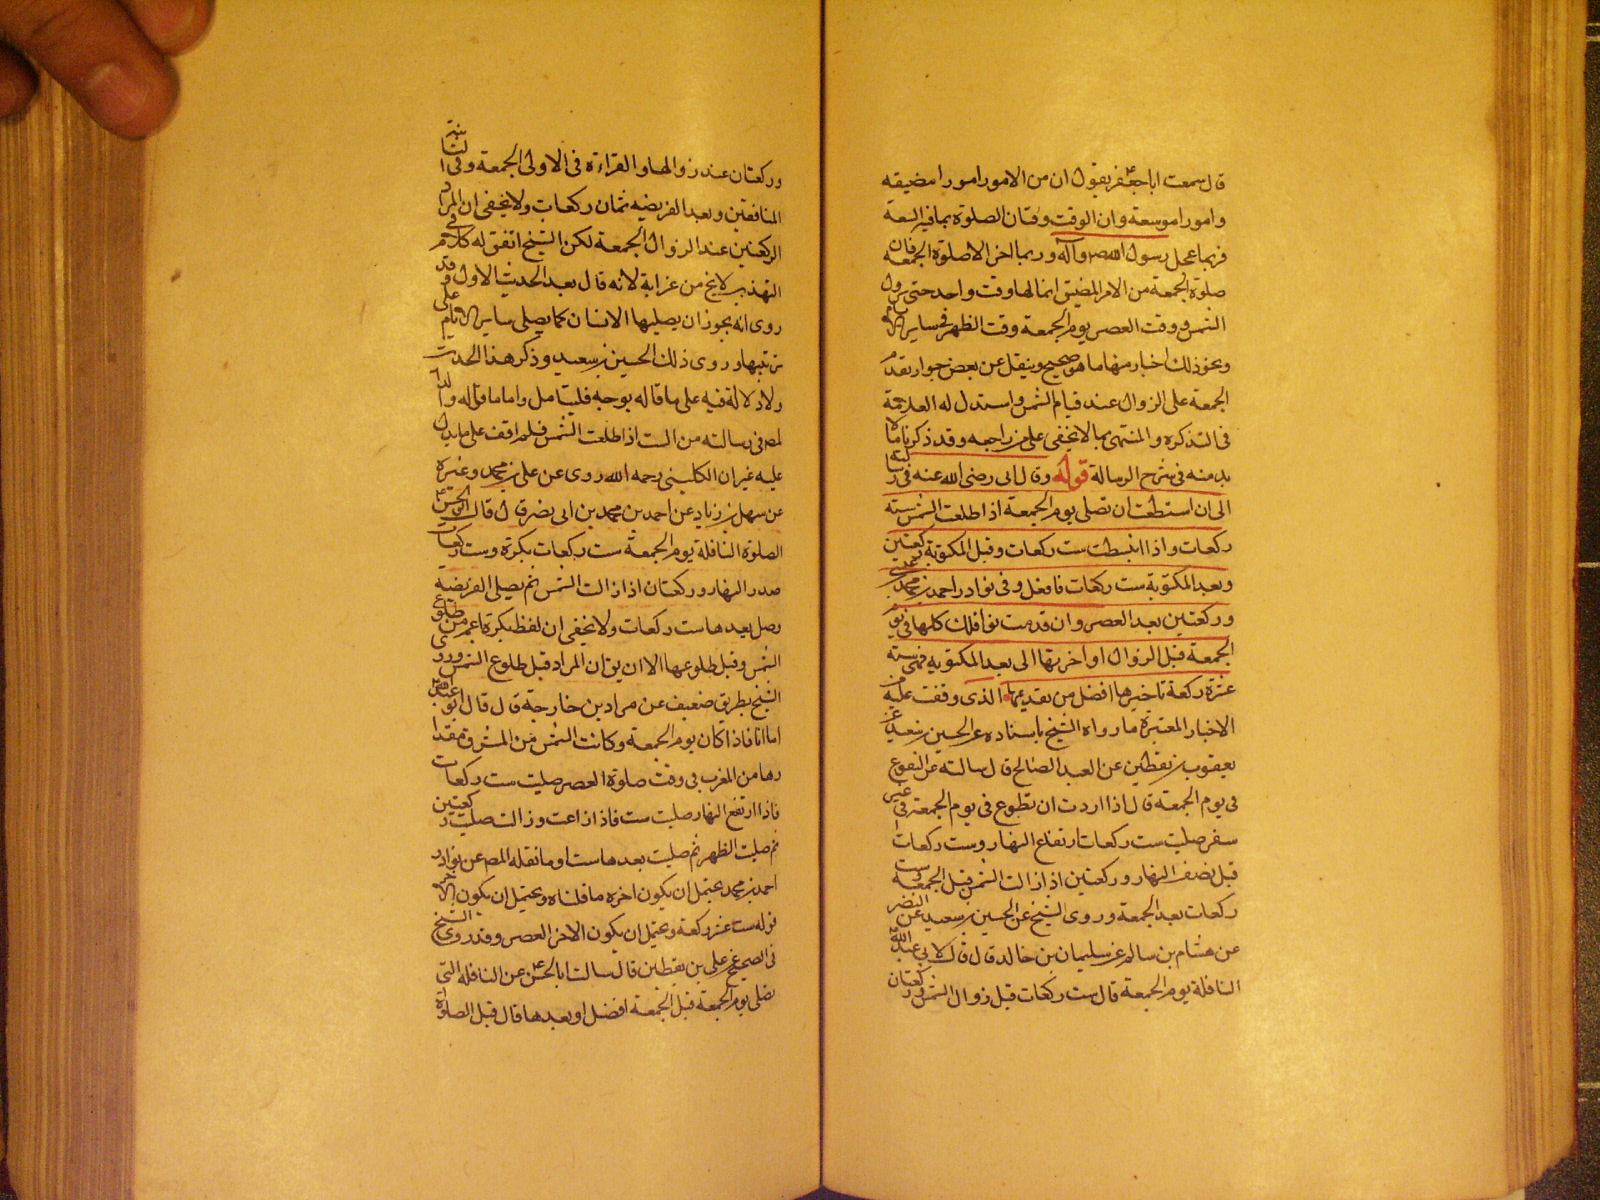 قال سمعت ابا جعفر ع يقول ان من الامور امورا مضيقه
وامورا موسعة وان الوقت وقتان الصلوة بما فيه السعة
فربما عجل رسول الله ص وآله وربما اخر الا صلوة الجمعة فان
صلوة الجمعة من الامر المضيق انما لها وقت واحد حتى تزول
الشمس ووقت العصر يوم الجمعة وقت الظهر في ساير الايام
ونحو ذلك اخبار منها ما هو صحيح وينقل عن بعض جواز تقدم
الجمعة على الزوال عند قيام الشمس واستدل له العلامة
في التذكره والمنتهى بما لا يخفى على من راجعه وقد ذكرنا ما لا
بد منه في شرح الرسالة قوله وقال ابي رضى الله عنه في رسالته
الى ان استطعت ان تصلى يوم الجمعة اذا طلعت الشمس ستة
ركعات واذا انبسطت ست ركعات وقبل المكتوبة ركعتين
وبعد المكتوبة ست ركعات فافعل وفى نوادر احمد بن محمد بن عيسى
وركعتين بعد العصر وان قدمت نوافلك كلها في يوم
الجمعة قبل الزوال او اخرتها الى بعد المكتوبة فهى ستة
عشرة ركعة تاخيرها افضل من تقديمها الذى وقفت عليه من
الاخبار المعتبرة ما رواه الشيخ باسناده عن الحسين بن سعيد عن
يعقوب بن يقطين عن العبد الصالح قال سالته عن التطوع
فى يوم الجمعة قال اذا اردت ان تطوع فى يوم الجمعة في غير
سفر صليت ست ركعات ارتفاع النهار وست ركعات
قبل نصف النهار وركعتين اذا زالت الشمس قبل الجمعة وست
ركعات بعد الجمعة وروى الشيخ عن الحسين بن سعيد عن النضر
عن هشام بن سالم عن سليمان بن خالد قال قلت لابي عبد الله ع
النافلة يوم الجمعة قال ست ركعات قبل زوال الشمس وركعتان
وركعتان عند زوالها والقراءة فى الاولى الجمعة وفى الثانية
المنافقين وبعد الفريضه ثمان ركعات ولا يخفى ان المراد
الركعتين عند الزوال الجمعة لكن الشيخ اتفق له كلام في
التهذيب لا يخ من غرابة لانه قال بعد الحديث الاول وقد
روى انه يجوز ان يصليها الانسان كما يصلى ساير الايام على
ترتيبها وروى ذلك الحسين بن سعيد وذكر هذا الحديث
ولا دلالة فيه على ما قاله بوجه فليتامل واما ما قاله
في رسالته من الست اذا طلعت الشمس فلم اقف على ما يدل
عليه غير ان الكليني رحمه الله روى عن على بن محمد وغيره
عن سهل بن زياد عن احمد بن محمد بن ابى نصر قال قال ابو الحسن ع
الصلوة النافلة يوم الجمعة ست ركعات بكرة وست ركعات
صدر النهار وركعتان اذا زالت الشمس ثم يصلى الفريضة
وصل بعدها ست ركعات ولا يخفى ان لفظ بكرة اعم من طلوع
الشمس وقبل طلوعها الا ان يق ان المراد قبل طلوع الشمس وروى
الشيخ بطريق ضعيف عن مراد بن خارجة قال قال ابو عبد الله ع
اما انا فاذا كان يوم الجمعة وكانت الشمس من المشرق مقدا
رها من المغرب فى وقت صلوة العصر صليت ست ركعات
فاذا ارتفع النهار صليت ست فاذا زاغت وزالت صليت ركعتين
ثم صليت الظهر ثم صليت بعدها ست وما نقله المص عن نوادر
احمد بن محمد يحتمل ان يكون اخره ما قلناه ويحتمل ان يكون الاخر
قوله ست عشر ركعة ويحتمل ان يكون الاخر العصر وقد روى الشيخ
فى الصحيح عن على بن يقطين قال سالت ابا الحسن ع عن النافلة التى
تصلى يوم الجمعة قبل الجمعة افضل او بعدها قال قبل الصلوة